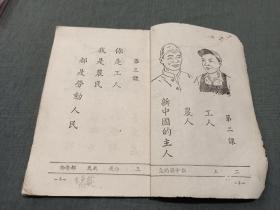 第二課
工人
農人
新中國的主人
第三課
你是工人
我是農民
都是勞動人民